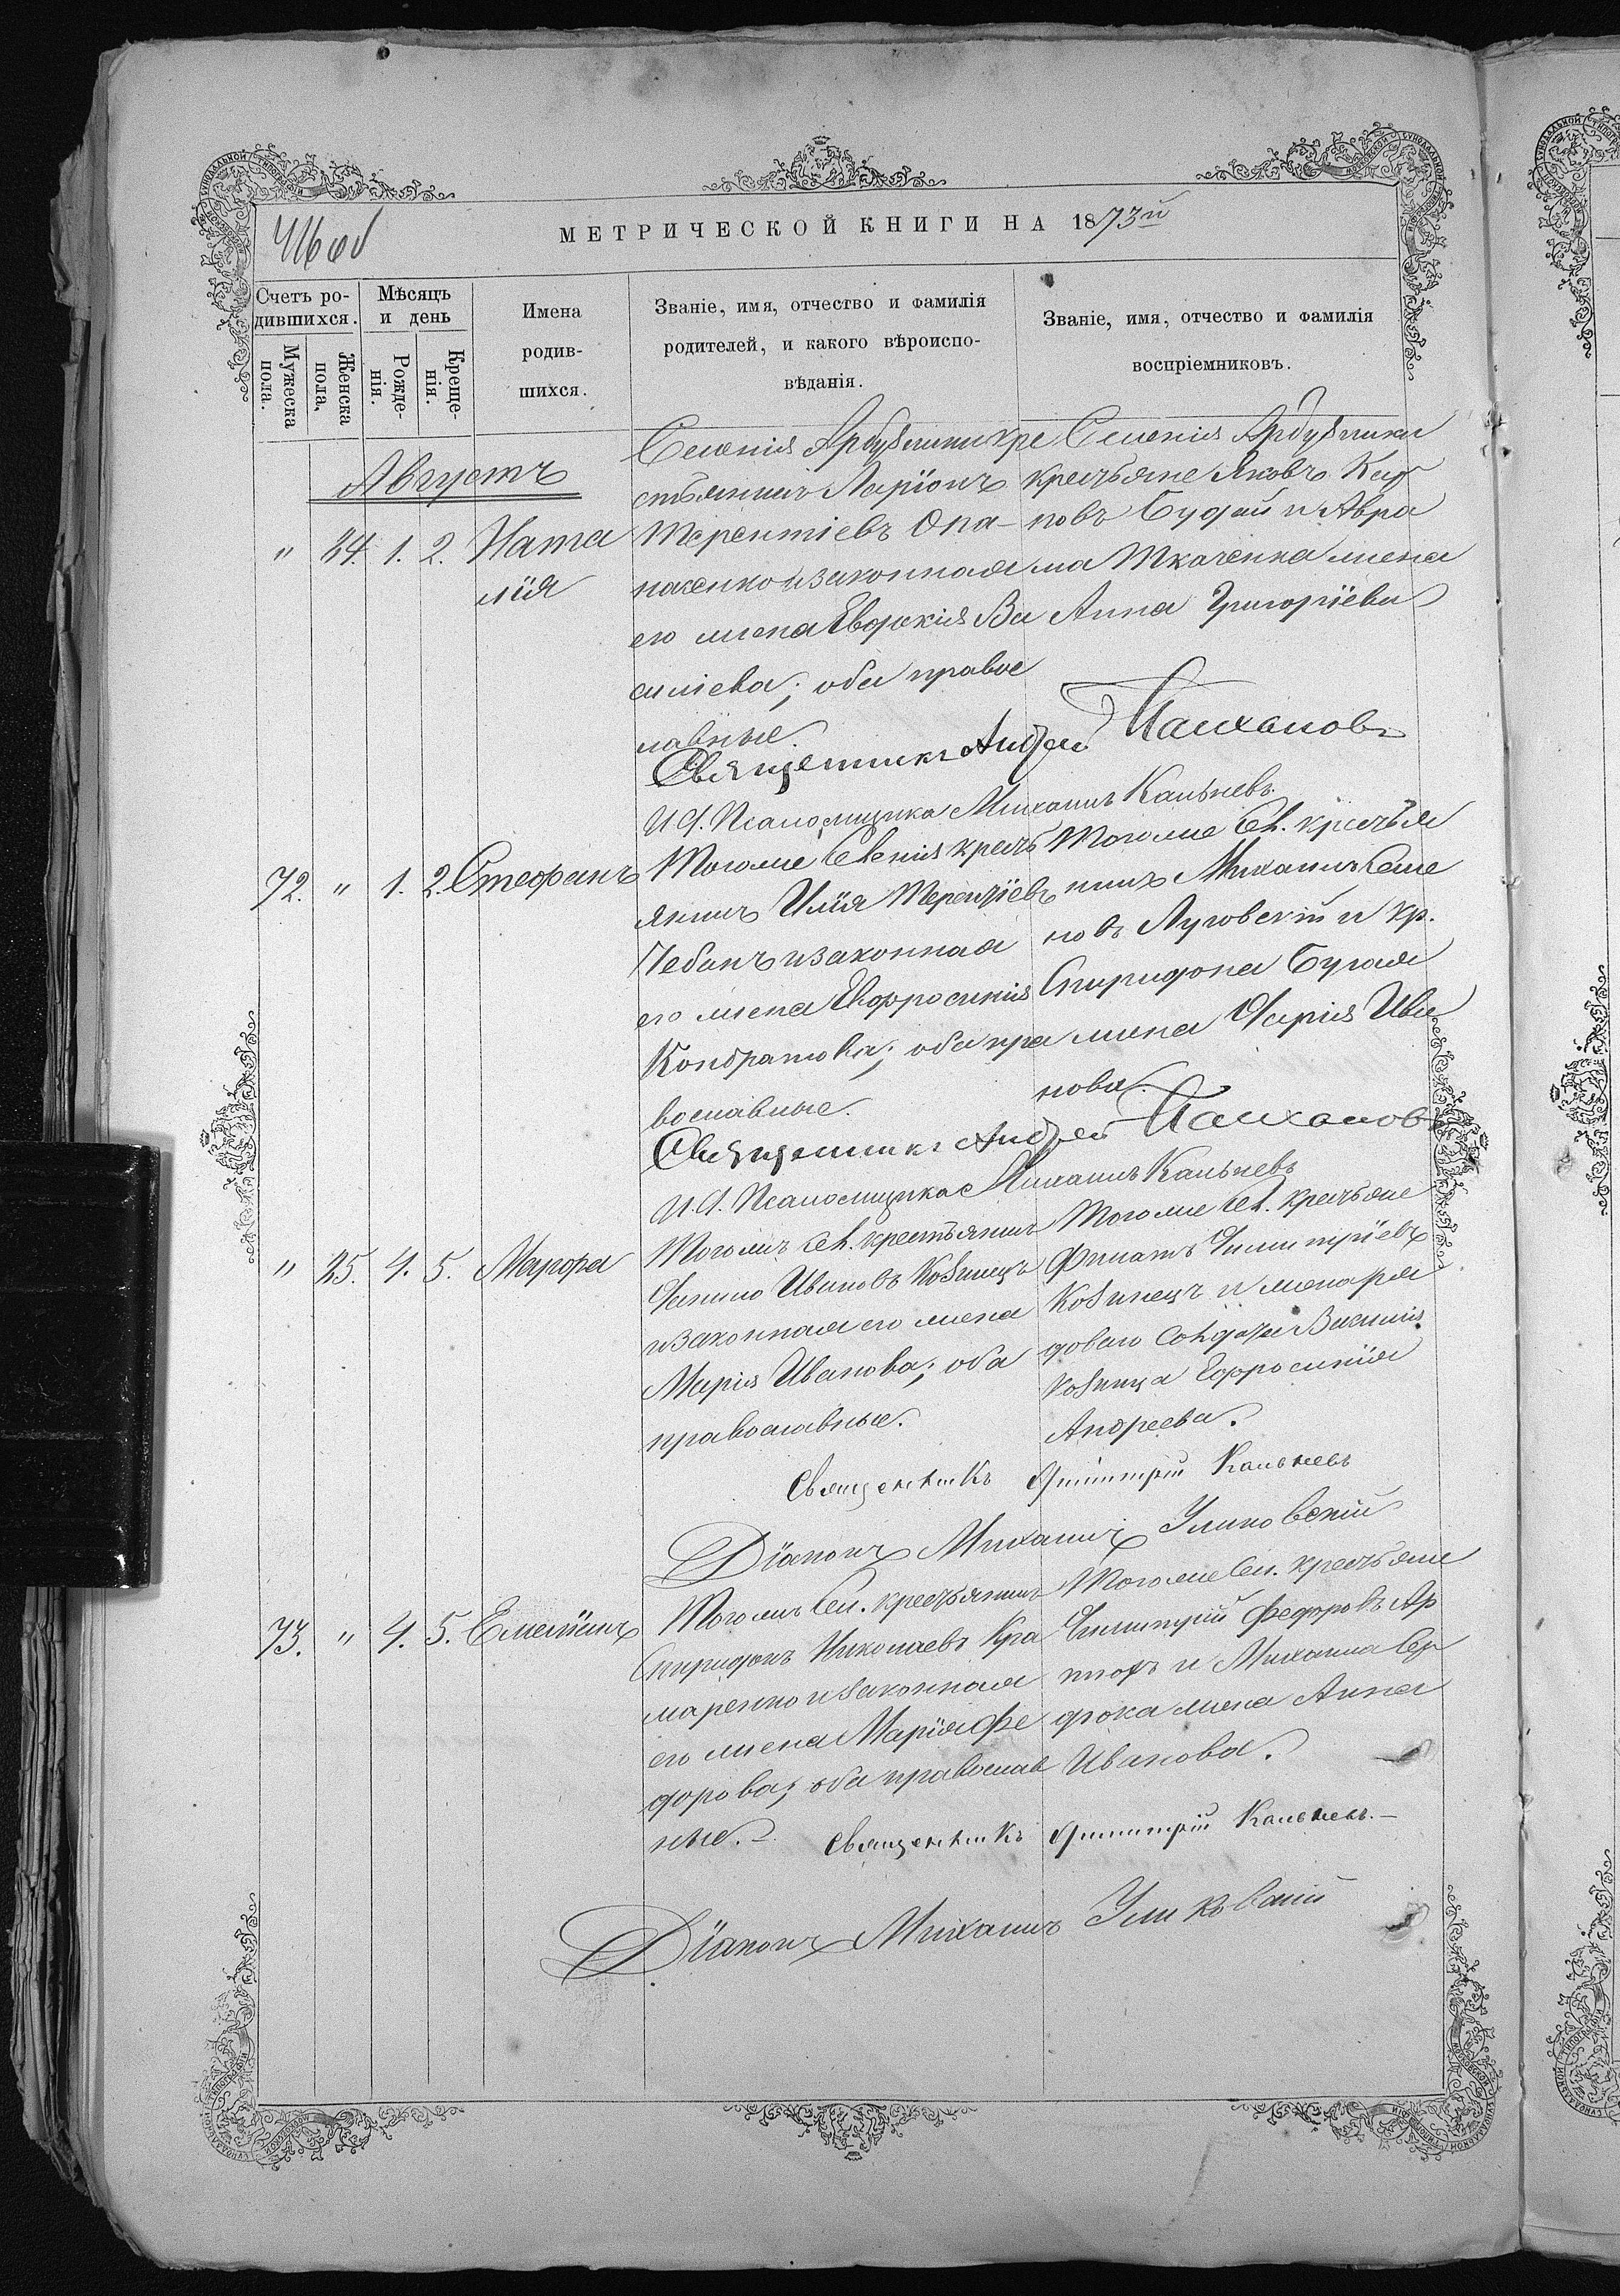 416 об
МЕТРИЧЕСКОЙ КНИГИ НА 1873й
Счетъ ро-
дившихся.
Мужеска пола.
Женска пола.
Мѣсяцъ
и день
Рожде-
нія.
Креще-
нія.
Имена
родив-
шихся.
Званіе, имя, отчество и фамилія
родителей, и какого вѣроиспо-
вѣданія.
Званіе, имя, отчество и фамилія
воспріемниковъ.
Августъ
" 24. 1. 2. Ната
лія
Селенія Арбузинки кре
стьянинъ Ларіонъ
Терентіевъ Опа-
насенко и законная
его жена Евдокія Ва
силіева; оба правос
лавные.
Селенія Арбузинки
крестьяне Яковъ Кар
повъ Будай и Авра
ма Ткаченка жена
Анна Григоріева
Священникъ Андрей
И. д. Псаломщика Михаилъ Кальневъ
72. " 1. 2. Стефанъ
Тогоже Селенія кресть
янинъ Илія Терентіевъ
Чебанъ и законная
его жена Евфросинія
Кондратова; оба пра
вославные.
Тогоже Сел. крестья
нинъ Михаилъ Семе
новъ Луговскій и кр.
Спиридона Бугая
жена Дарія Ива
нова.
Священникъ Андрей
И. д. Псаломщика Михаилъ Кальневъ
" 25. 4. 5. Мавра
Тогожъ Сел. крестьянинъ
Данило Ивановъ Козинецъ
и законная его жена
Марія Иванова; оба
православные.
Тогоже Сел. крестьяне
Филатъ Димитріевъ
Козинецъ и жена ря
доваго Солдата Василія
Козинца Ефросинія
Андреева.
Священникъ Димитрій Кальневъ
Діаконъ Михаилъ
73. " 4. 5. Емеліанъ
Тогожъ Сел. крестьянинъ
Спиридонъ Николаевъ Кра
маренко и законная
его жена Марія Фе
дорова; оба православ
ные.
Тогоже Сел. крестьяне
Димитрій Федоровъ Ар
тюхъ и Михаила Сер
дюка жена Анна
Иванова.
Священникъ Димитрій Кальневъ.
Діаконъ Михаилъ